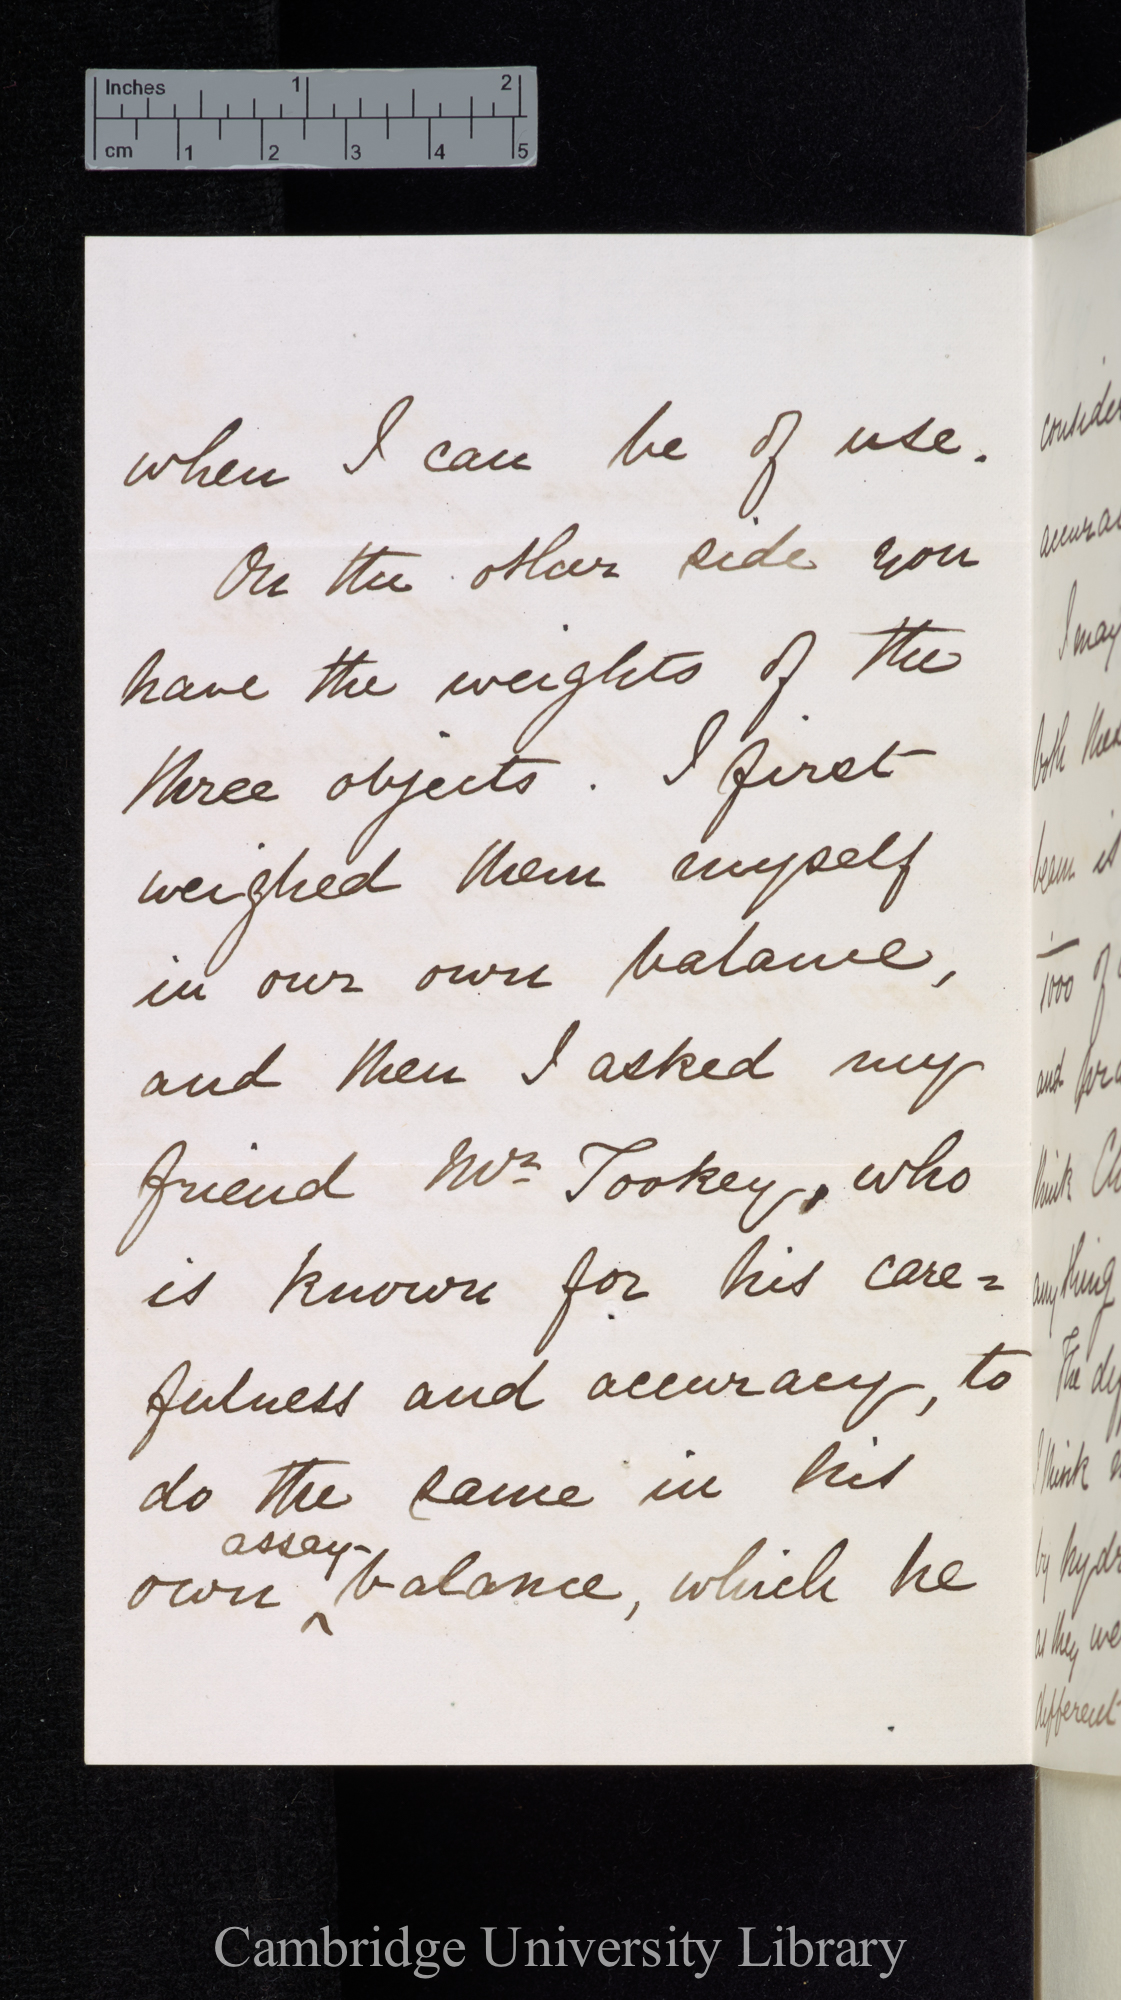 Inches 1 2
cm 1 2 3 4 5
when I can be of use.
On the other side you
have the weights of the
three objects. I first
weighed them myself
in our own balance,
and then I asked my
friend Mr Tookey, who
is known for his care=
fulness and accuracy, to
do the same in his
own ^assay-balance, which he
I may
both
beam is
1000 of
and
think
any thing
The
I think
by
as they
different
Cambridge University Library